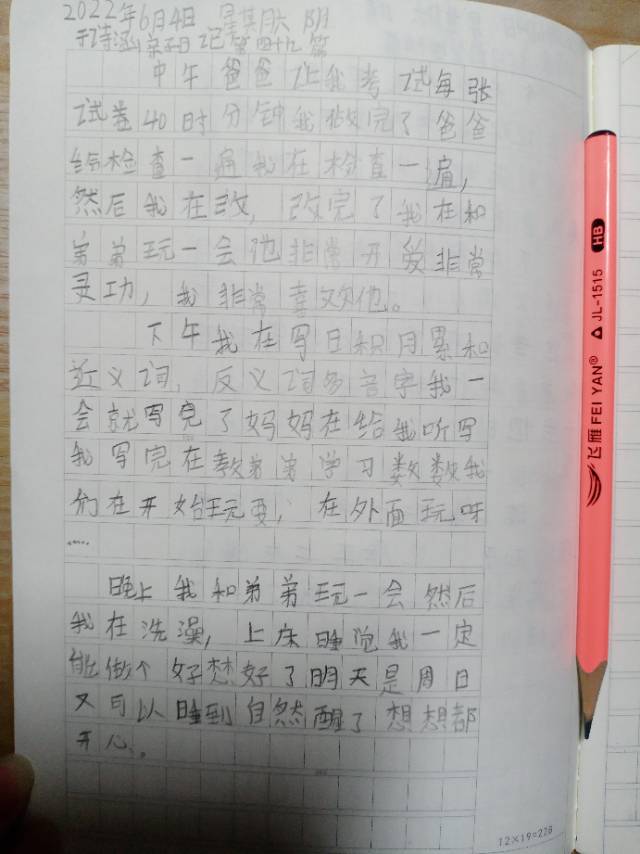 2022年6月4日 星其月六 阴
亲子日记第四十九篇
中午爸爸让我考试每张
试卷40时分钟我做完了爸爸
给检查一遍我在检查一遍，
然后我在改，改完了我在和
弟弟玩一会他非常开爱非常
灵功，我非常喜欢他。
下午我在写日积月累和
近义词，反义词多音字我一
会就写完了妈妈在给我听写
我写完在教弟弟学习数数我
们在开始玩耍，在外面玩呀
……
晚上我和弟弟玩一会然后
我在洗澡，上床睡觉我一定
能做个好梦好了明天是周日
又可以睡到自然醒了想想都
开心。
12×19=228
飞雁 FEI YAN® JL-1515 HB